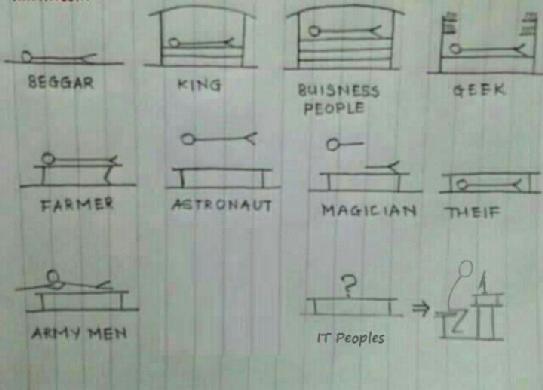 BEGGAR
KING
BUISNESS
PEOPLE
GEEK
FARMER
ASTRONAUT
MAGICIAN
THEIF
ARMY MEN
?
IT Peoples